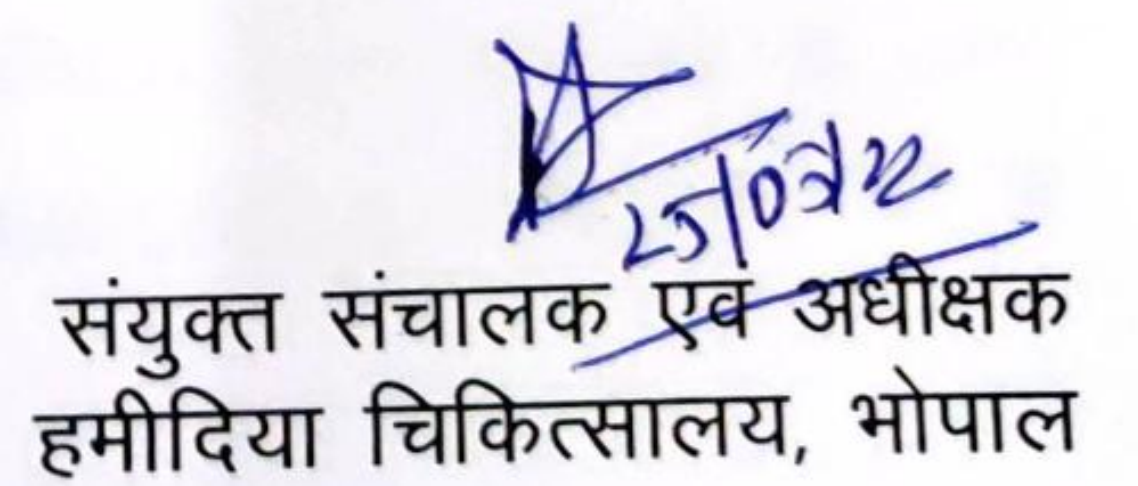 संयुक्त संचालक एवं अधीक्षक
हमीदिया चिकित्सालय, भोपाल